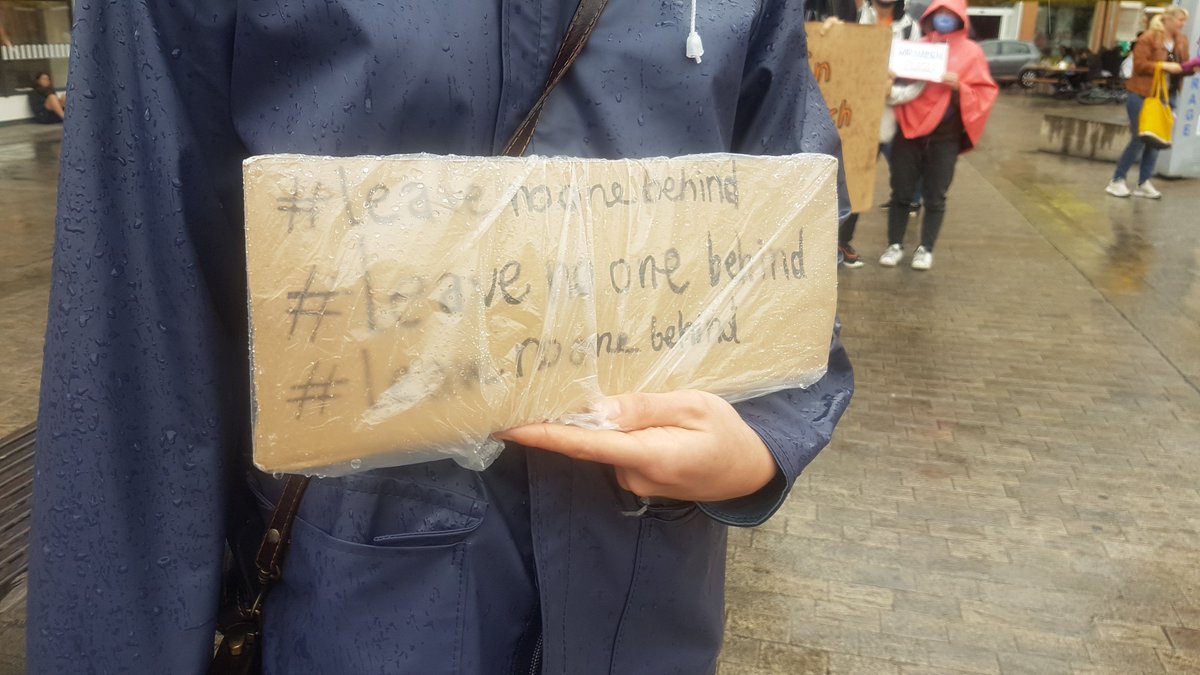 #leave no one behind
#leave no one behind
#leave no one behind